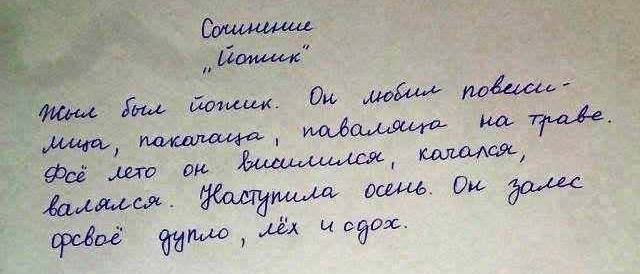 Сочинение
„Йожик"
Жыл был йожик. Он любил повеси-
мица, пакачаца, паваляца на траве.
Фсё лето он висилился, качался,
валялся. Наступила осень. Он залес
фсваё дупло, лёх и сдох.